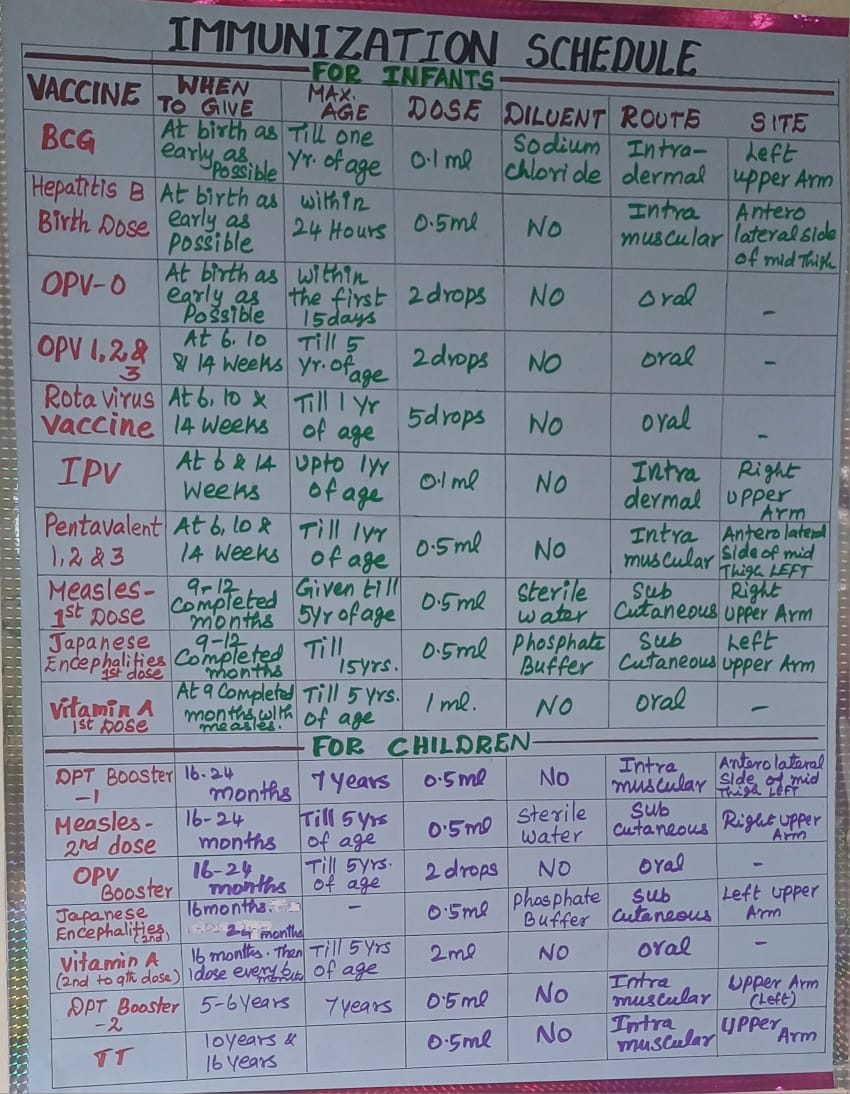 IMMUNIZATION SCHEDULE
FOR INFANTS
VACCINE WHEN TO GIVE MAX. AGE DOSE DILUENT ROUTE SITE
BCG At birth as early as Possible Till one Yr. of age 0.1 ml Sodium chloride Intra-dermal Left upper Arm
Hepatitis B Birth Dose At birth as early as Possible within 24 Hours 0.5ml NO Intra muscular Antero lateral side of mid Thigh
OPV-0 At birth as early as Possible within the first 15days 2 drops NO oral -
OPV 1,2,& 3 At 6, 10 & 14 weeks Till 5 yr. of age 2 drops NO oral -
Rota virus vaccine At 6, 10 & 14 weeks Till 1 Yr of age 5 drops NO oral -
IPV At 6 & 14 weeks Upto 1yr of age 0.1 ml NO Intra dermal Right upper Arm
Pentavalent 1, 2 & 3 At 6, 10 & 14 weeks Till 1yr of age 0.5ml NO Intra muscular Antero lateral Side of mid Thigh LEFT
Measles- 1st Dose 9-12 Completed months Given till 5yr of age 0.5ml Sterile water Sub Cutaneous Right Upper Arm
Japanese Encephalities 1st dose 9-12 Completed months Till 15yrs. 0.5ml Phosphate Buffer Sub Cutaneous Left upper Arm
Vitamin A 1st Dose At 9 Completed months, with measles. Till 5 yrs. of age 1 ml. NO oral -
FOR CHILDREN
DPT Booster -1 16-24 months 7 Years 0.5ml NO Intra muscular Antero lateral Side of mid Thigh LEFT
Measles- 2nd dose 16-24 months Till 5 yrs of age 0.5ml Sterile water Sub cutaneous Right upper Arm
OPV Booster 16-24 months Till 5yrs. of age 2 drops NO oral -
Japanese Encephalities (2nd) 16months. 24 months - 0.5ml Phosphate Buffer Sub cutaneous Left upper Arm
Vitamin A (2nd to 9th dose) 16 months. Then 1 dose every 6 months Till 5 Yrs of age 2ml NO oral -
DPT Booster -2 5-6 Years 7 years 0.5ml No Intra muscular Upper Arm (Left)
TT 10 years & 16 Years 0.5ml NO Intra muscular Upper Arm